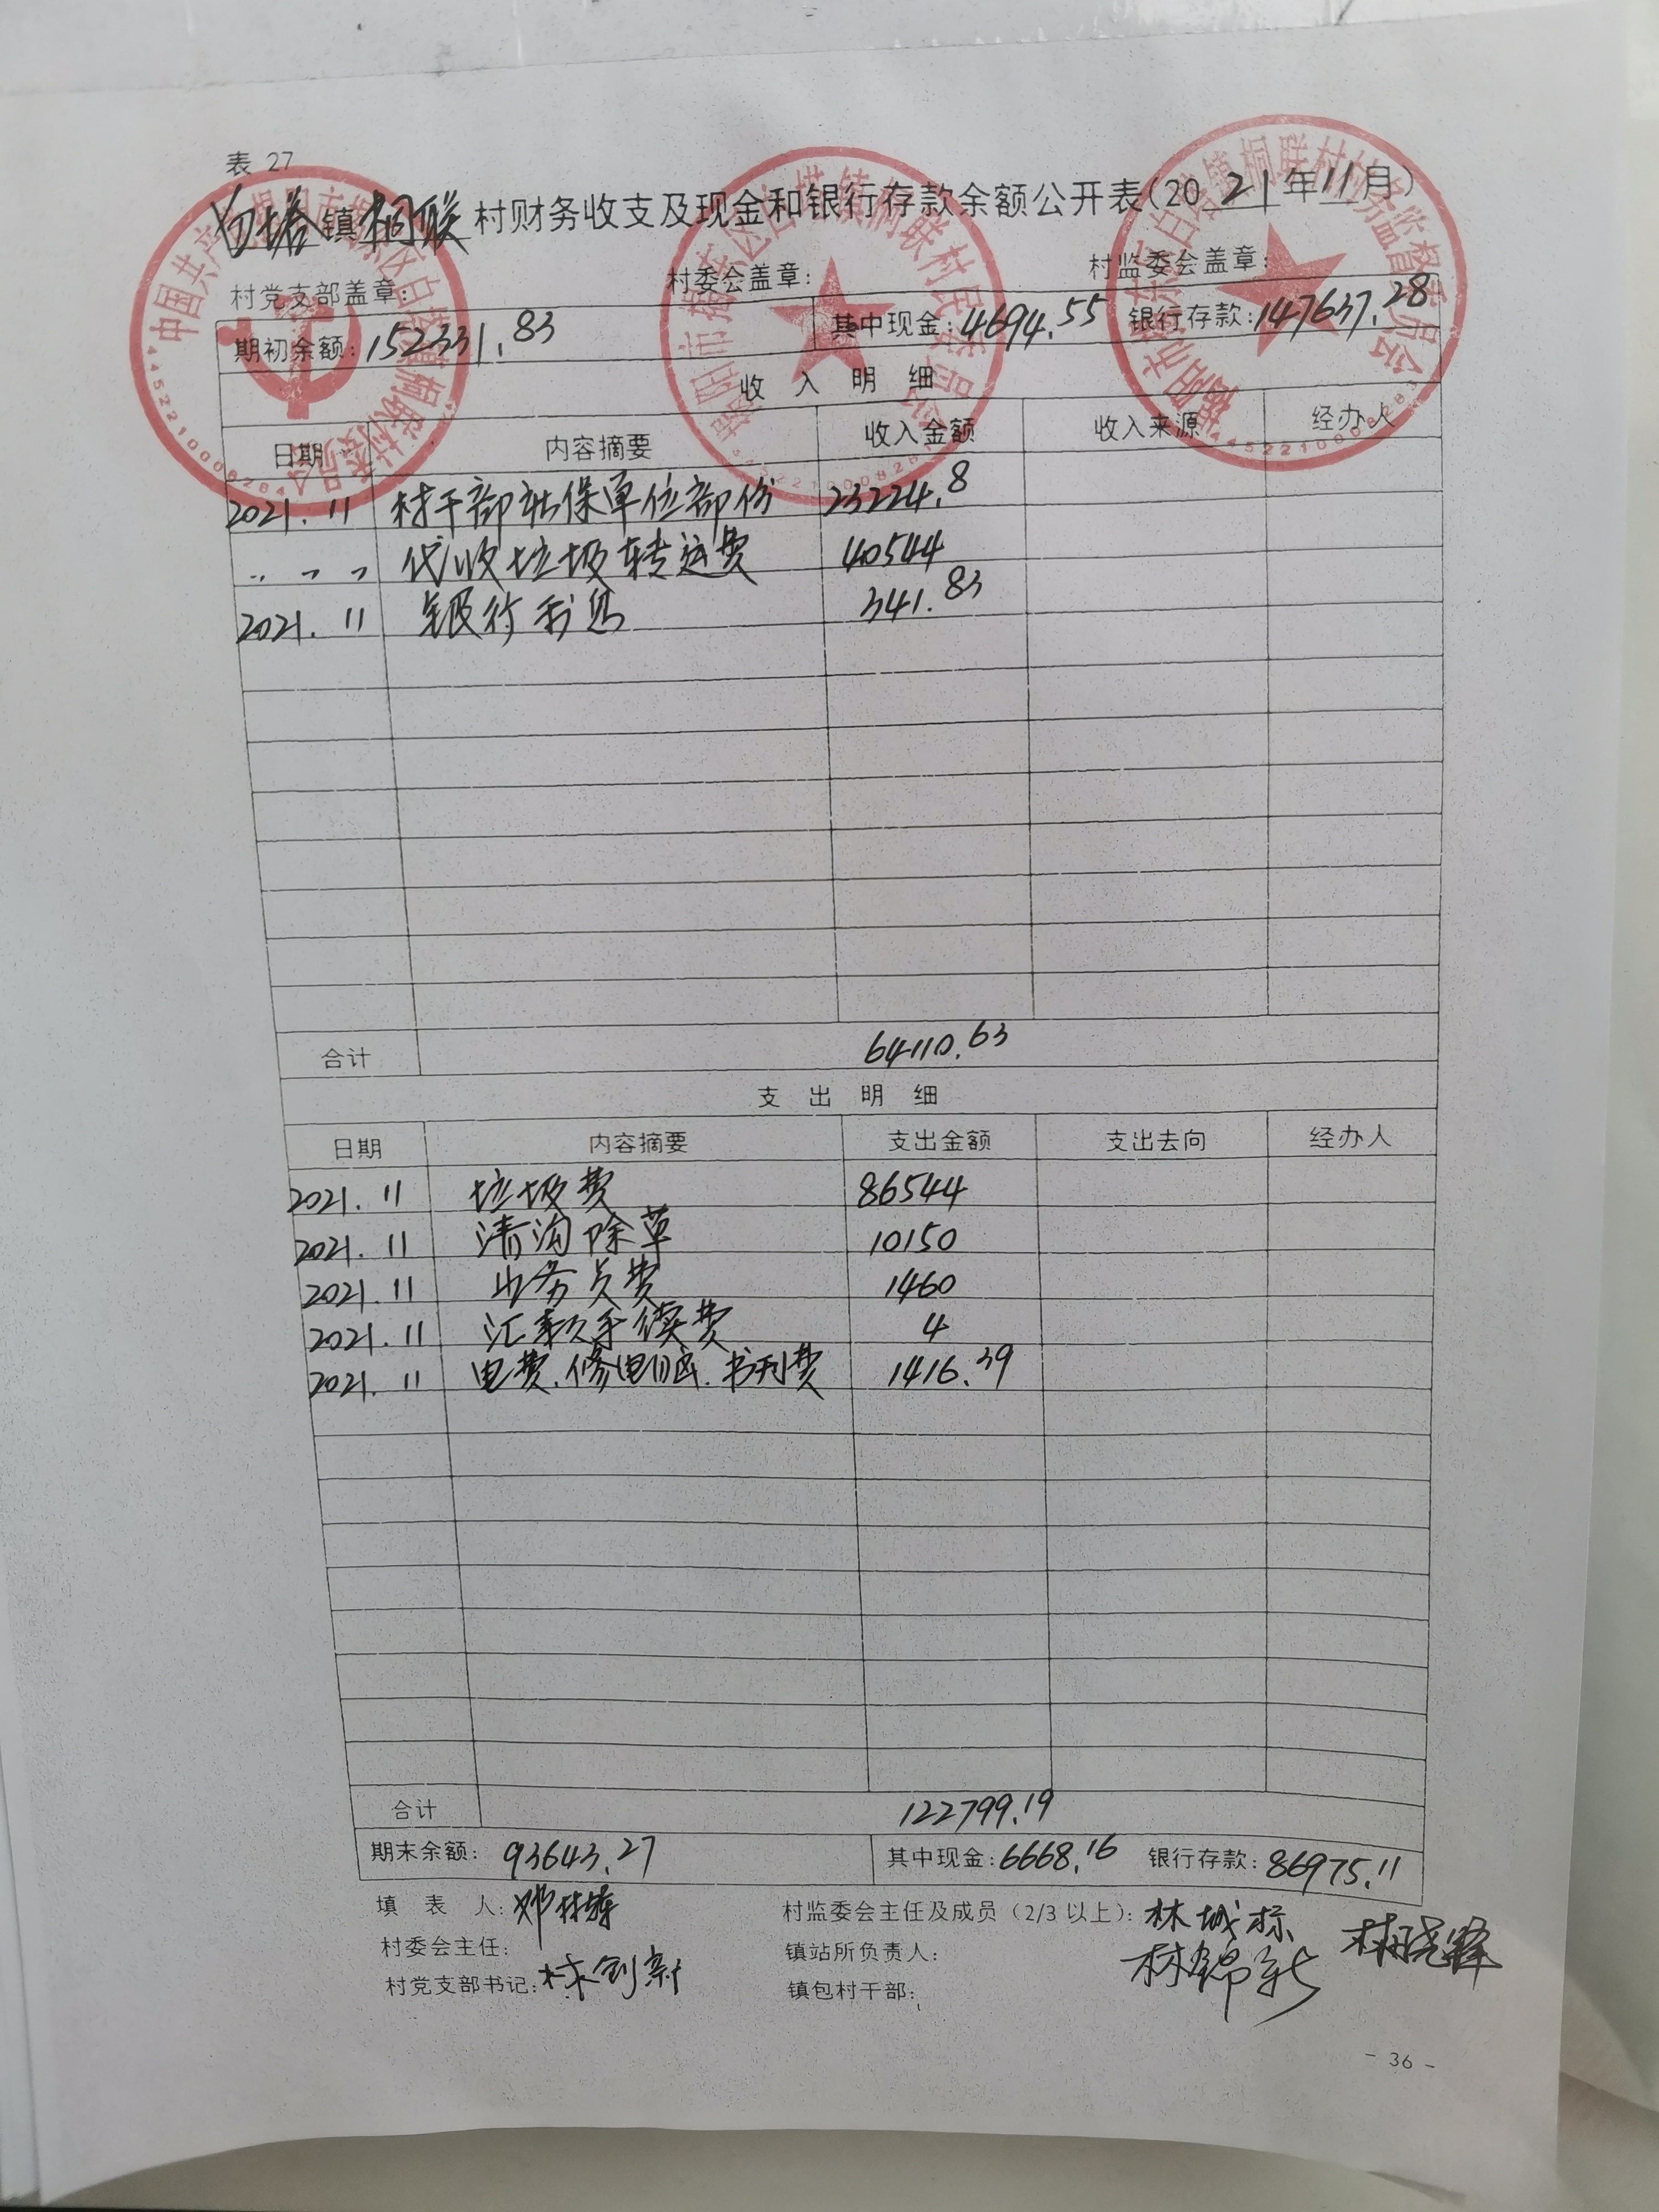 表 27
白塔镇桐联村财务收支及现金和银行存款余额公开表(2021年11月)
村党支部盖章: 村委会盖章: 村监委会盖章:
期初余额:152331.83 其中现金:4694.55 银行存款:147637.28
收 入 明 细
日期 内容摘要 收入金额 收入来源 经办人
2021.11 村干部社保单位部份 23224.8
代收垃圾转运费 40544
2021.11 银行利息 341.83
合计 64110.63
支 出 明 细
日期 内容摘要 支出金额 支出去向 经办人
2021.11 垃圾费 86544
2021.11 清沟除草 10150
2021.11 务员费 1460
2021.11 汇款手续费 4
2021.11 电费、修电脑、书刊费 1416.39
合计 122799.19
期末余额: 93643.27 其中现金:6668.16 银行存款:86975.11
填 表 人: 村监委会主任及成员(2/3以上): 林城标 林晓锋
村委会主任: 镇站所负责人: 林锦新
村党支部书记:林剑新 镇包村干部:
- 36 -